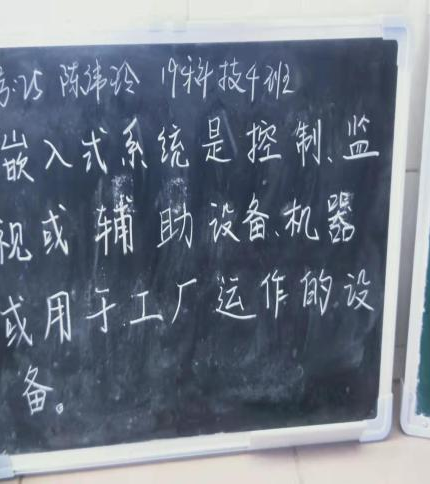 号:25 陈纬玲 19科技4班
嵌入式系统是控制、监
视或辅助设备、机器
或用于工厂运作的设
备。